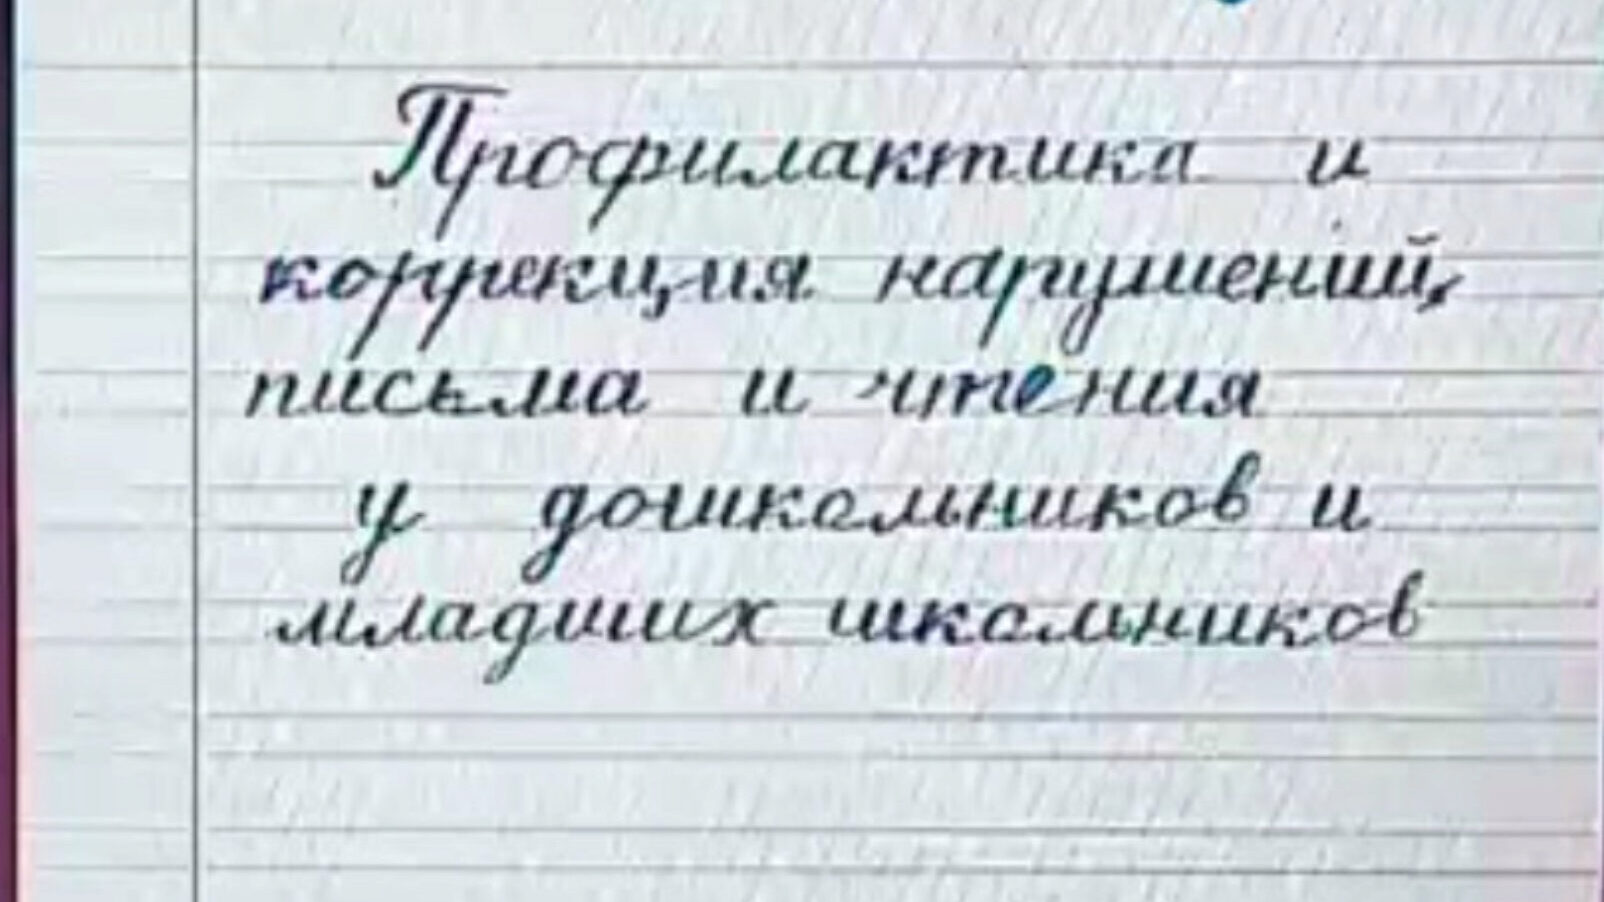 Профилактика и
коррекция нарушений,
письма и чтения
у дошкольников и
младших школьников